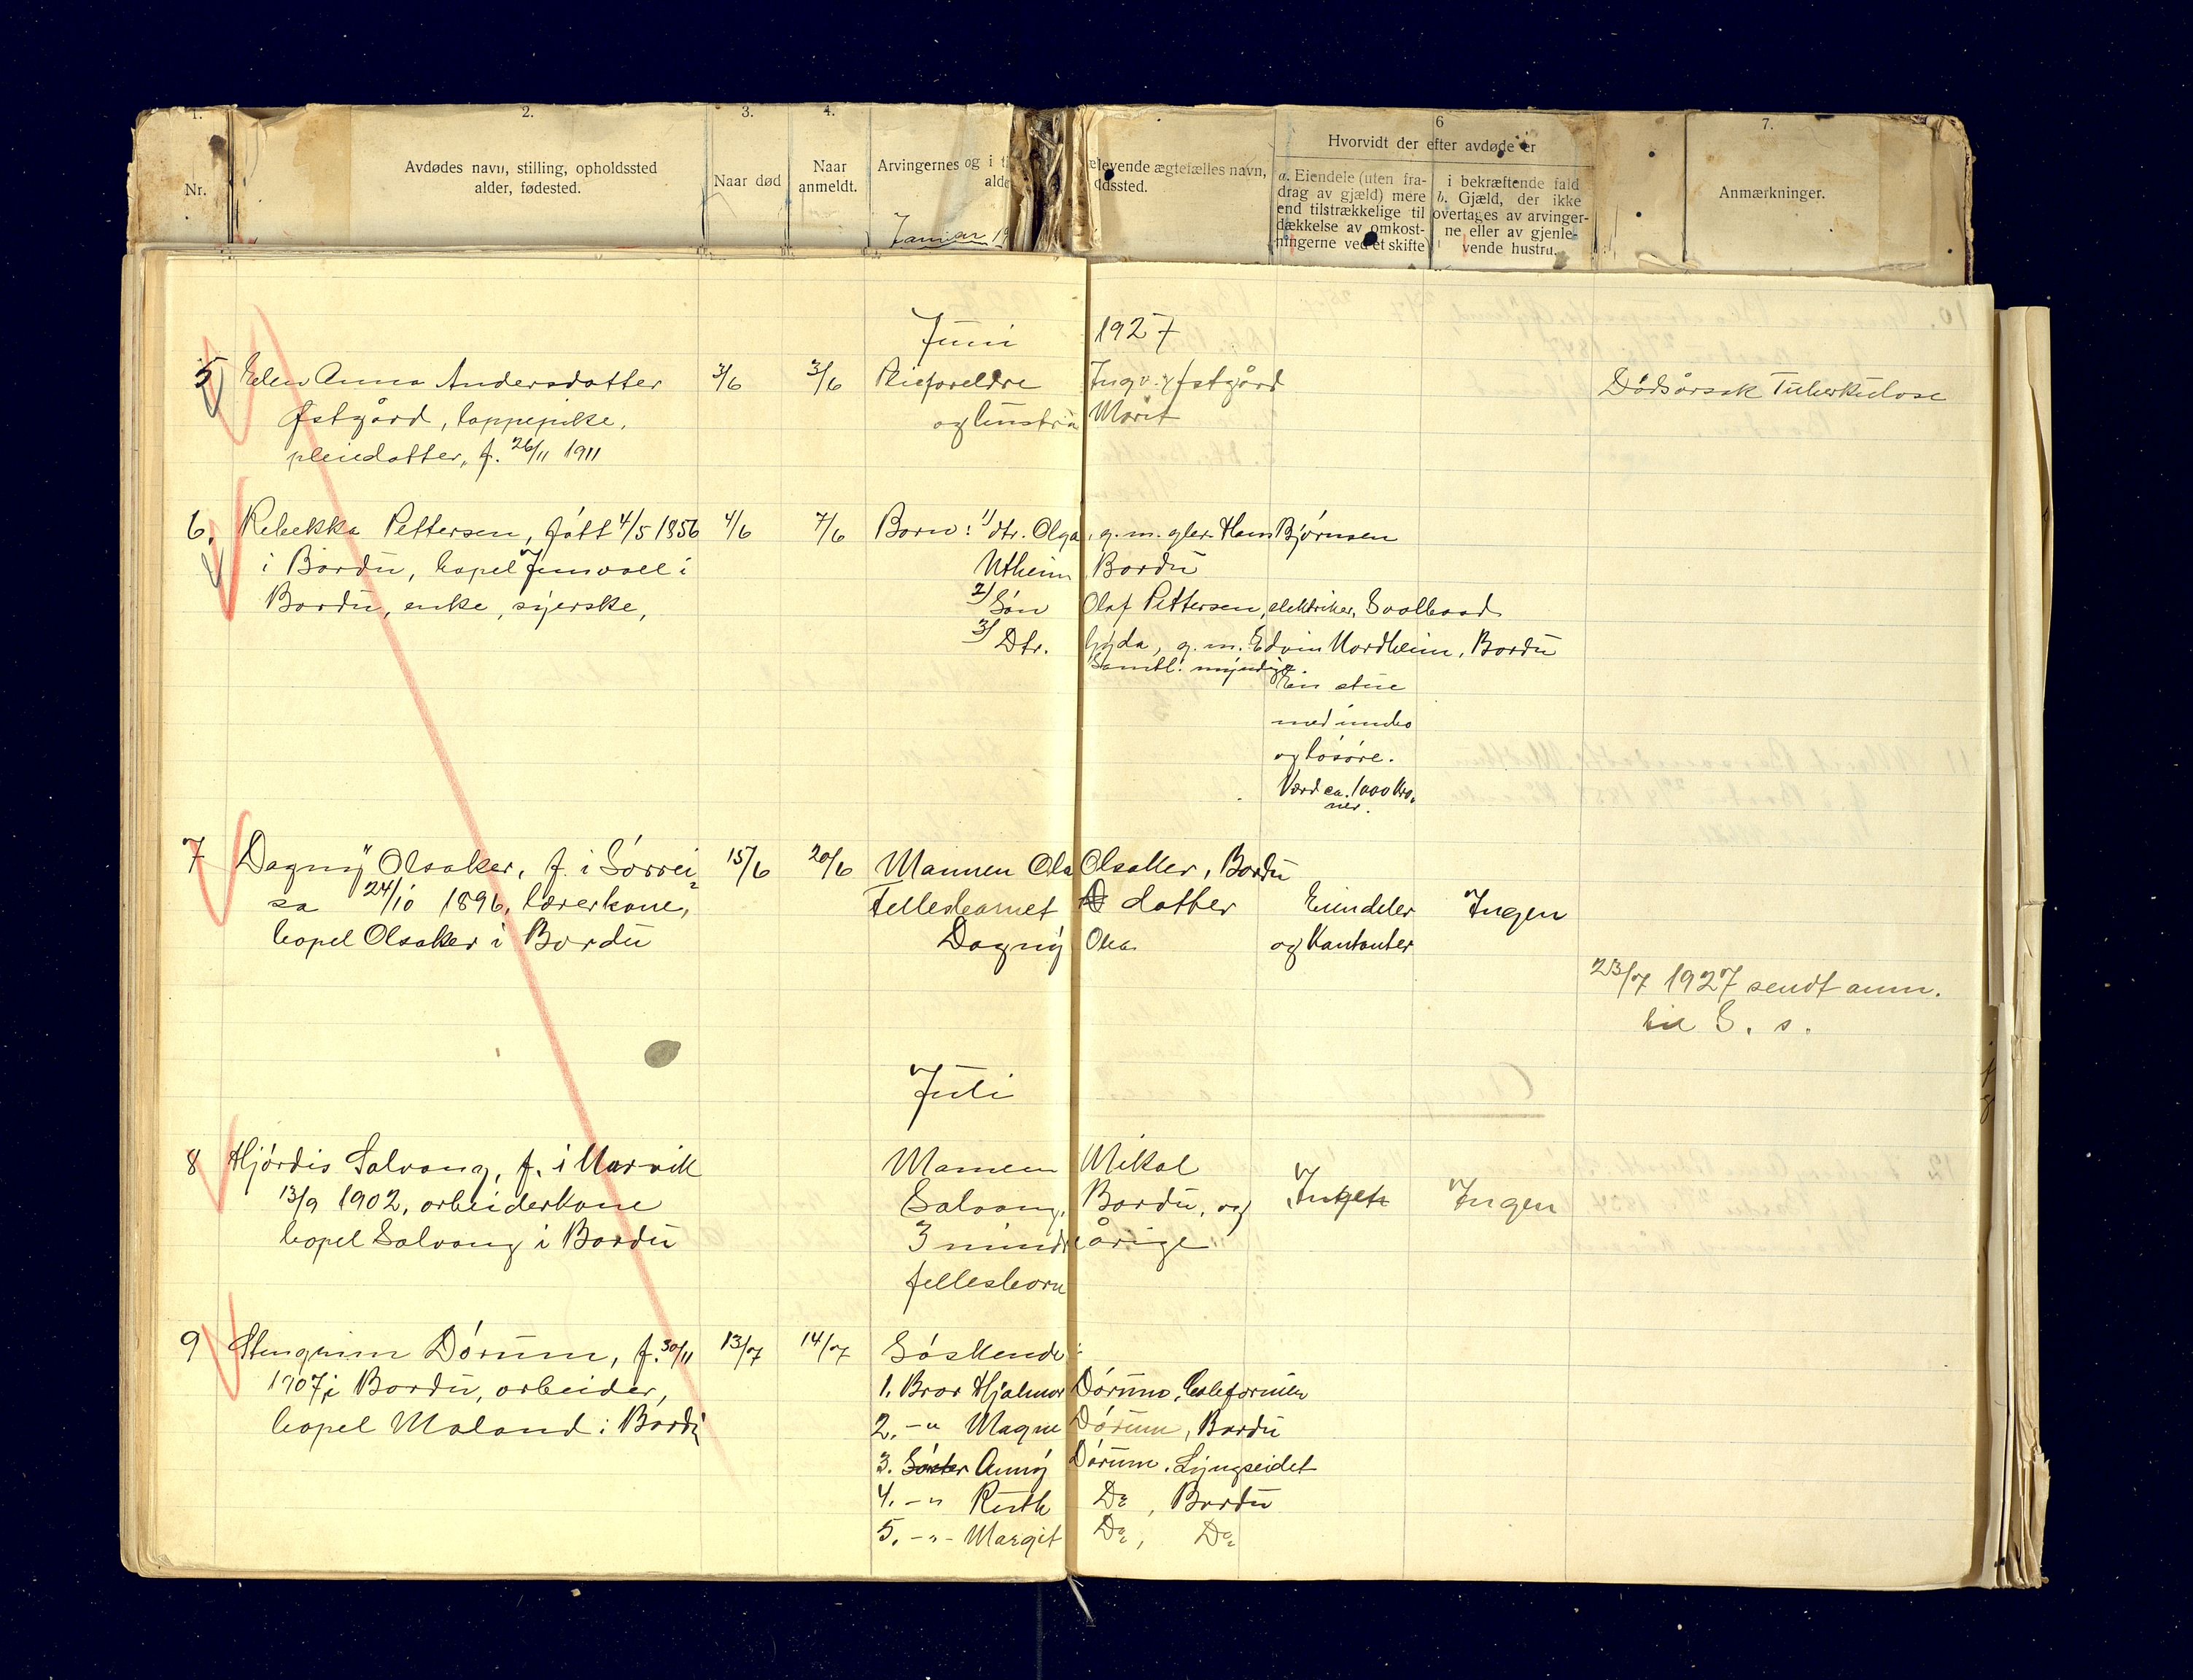 1.
2.
3.
4.
6
7.
Nr.
Avdødes navn, stilling, opholdssted
alder, fødested.
Naar død
Naar
anmeldt.
Arvingernes og i
alde
Januar 19
elevende ægtefælles navn,
ddssted.
Hvorvidt der efter avdøde er
a. Eiendele (uten fra-
drag av gjæld) mere
end tilstrækkelige til
dækkelse av omkost-
ningerne ved et skifte
i bekræftende fald
b. Gjæld, der ikke
overtages av arvinger-
ne eller av gjenle-
vende hustru.
Anmærkninger.
Juni 1927
5 Elen Anna Andersdatter 3/6 3/6 Pleieforeldre Ingv. Østgård Dødsårsak Tuberkulose
Østgård, lappepike, og hustru Marit
pleiedatter, f. 26/11 1911
6. Rebekka Pettersen, født 4/5 1856 4/6 7/6 Barn: 1/ dtr. Olga, g.m. gbr. Hans Bjørnsen
i Bardu, bopel i Utheim Bardu
Bardu, enke, syerske, 2/ Søn Olaf Pettersen, elektriker, Svalbard
3/ Dtr. Gyda, g.m. Edvin Nordheim, Bardu
Samtl. myndige.
Ein stue
med innbo
og løsøre.
Verd ca. 1000 kro-
ner.
7 Dagny Olsaker, f. i Sørrei- 15/6 20/6 Mannen Ola Olsaker, Bardu
sa 24/10 1896, lærerkone, Fellesbarnet datter Eiendeler Ingen
bopel Olsaker i Bardu Dagny Olea og Kontanter
23/7 1927 sendt anm.
til S. s.
Juli
8 Hjørdis Salvang, f. i Narvik Mannen Mikal
13/9 1902, arbeiderkone Salvang, Bardu, og Ingen Ingen
bopel Salvang i Bardu 3 mindreårige
fellesbarn
9 Stengrim Dørum, f. 30/11 13/7 14/7 Søskende:
1907 i Bardu, arbeider, 1. Bror Hjalmar Dørum, Californien
bopel Moland i Bardu 2. -"- Magne Dørum, Bardu
3. Søster Anny Dørum, Lyngseidet
4. -"- Ruth Do, Bardu
5. -"- Margit Do, Do